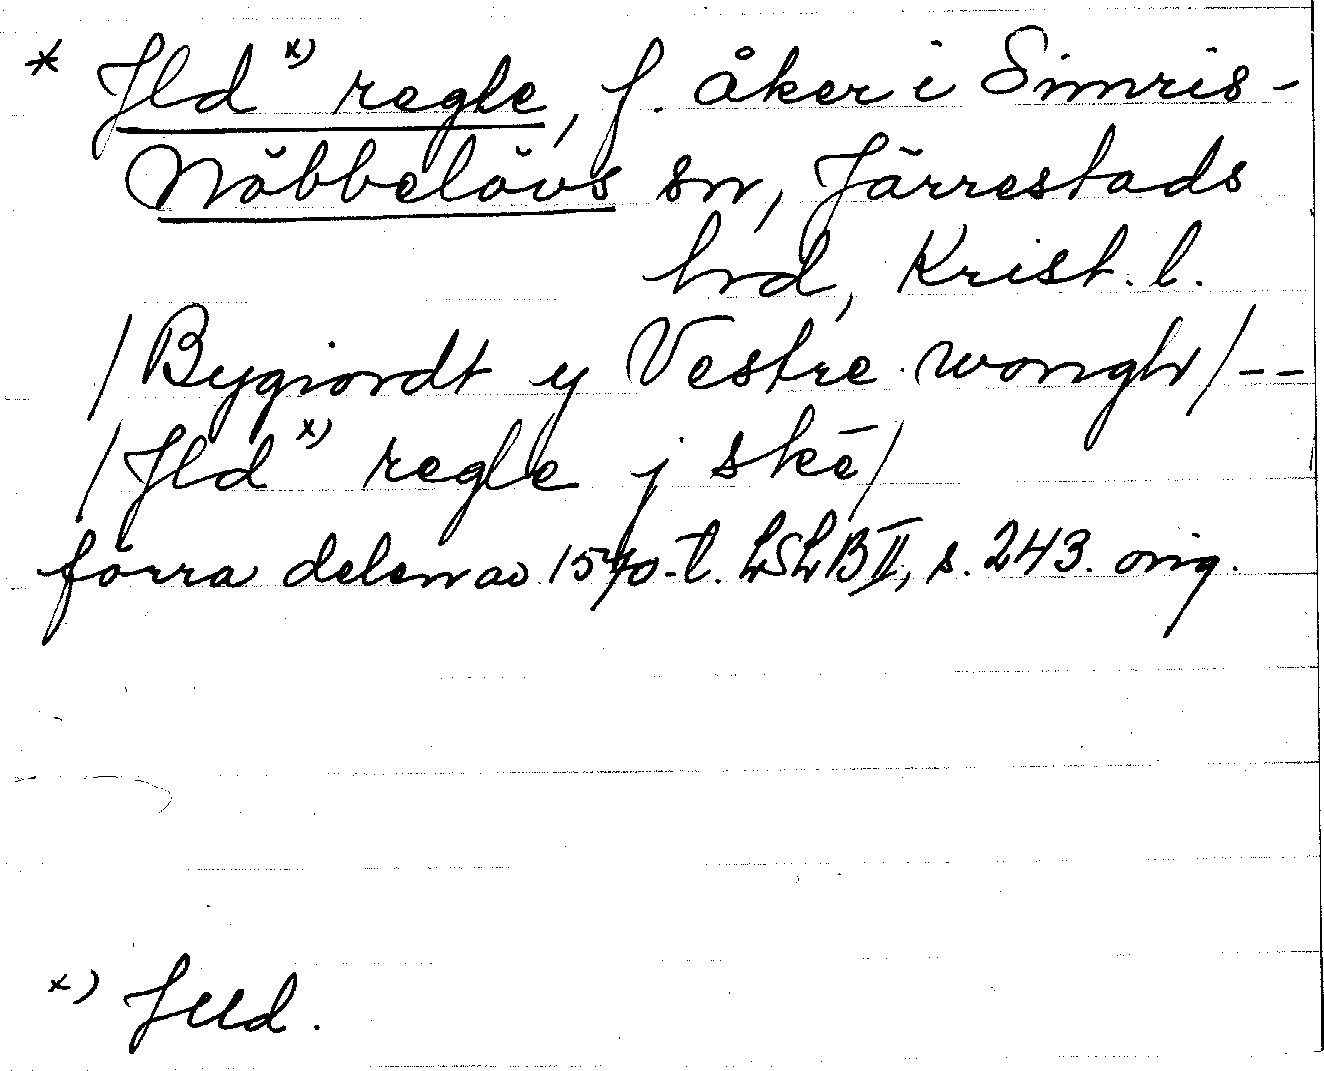 * Jld ˣ⁾ regle, f. åker i Simris-
Nöbbelövs sn, Järrestads
hrd, Krist. l.
/Bygiordt y Vestre wongh/--
/Jld ˣ⁾ regle j skē/
förra delen av 1570-t. LSLB II, s. 243. orig.
ˣ⁾ Jlld.